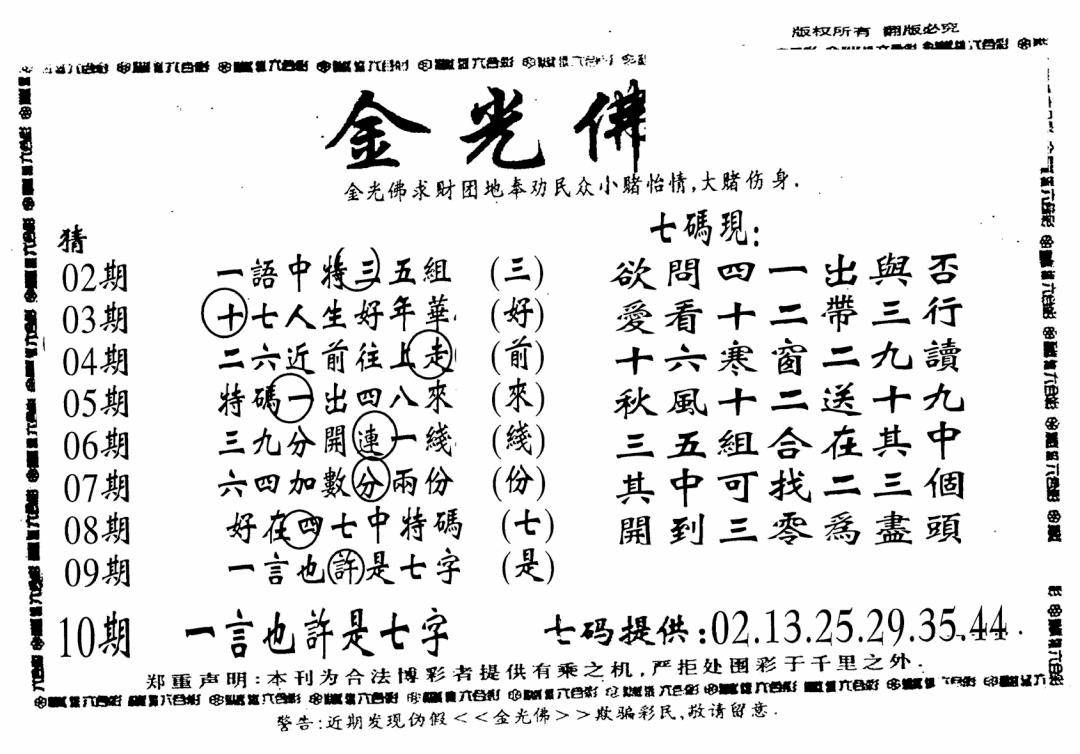 版权所有 翻版必究
金光佛
金光佛求财团地奉劝民众小赌怡情,大赌伤身.
猜
七碼現:
02期 一語中特三五組 (三) 欲問四一出與否
03期 十七人生好年華 (好) 愛看十二帶三行
04期 二六近前往上走 (前) 十六寒窗二九讀
05期 特碼一出四八來 (來) 秋風十二送十九
06期 三九分開連一綫 (綫) 三五組合在其中
07期 六四加數分兩份 (份) 其中可找二三個
08期 好在四七中特碼 (七) 開到三零爲盡頭
09期 一言也許是七字 (是)
10期 一言也許是七字 七码提供:02.13.25.29.35.44.
郑重声明:本刊为合法博彩者提供有乘之机,严拒处围彩于千里之外.
警告:近期发现伪假<<金光佛>>欺骗彩民,敬请留意.